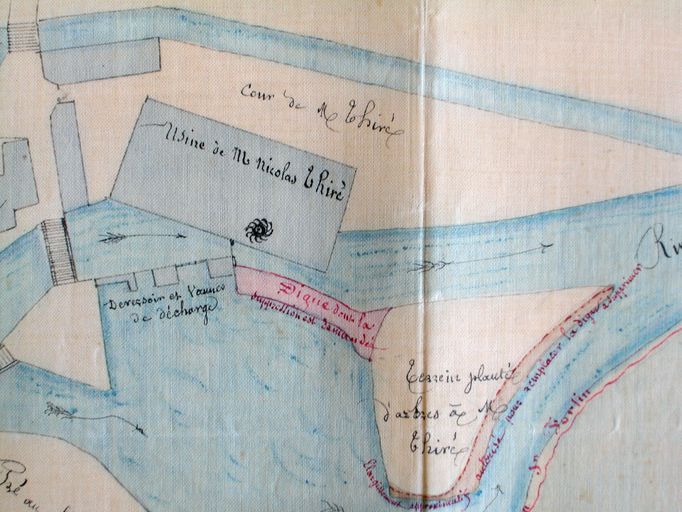 Cour de Mr Thiré
Usine de Mr Nicolas Thiré
Déversoir et Vannes
de décharge
Digue dont la
suppression est demandée
Terrein planté
d'arbres à Mr
Thiré
pour remplacer la digue à supprimer
approximatif
Pré